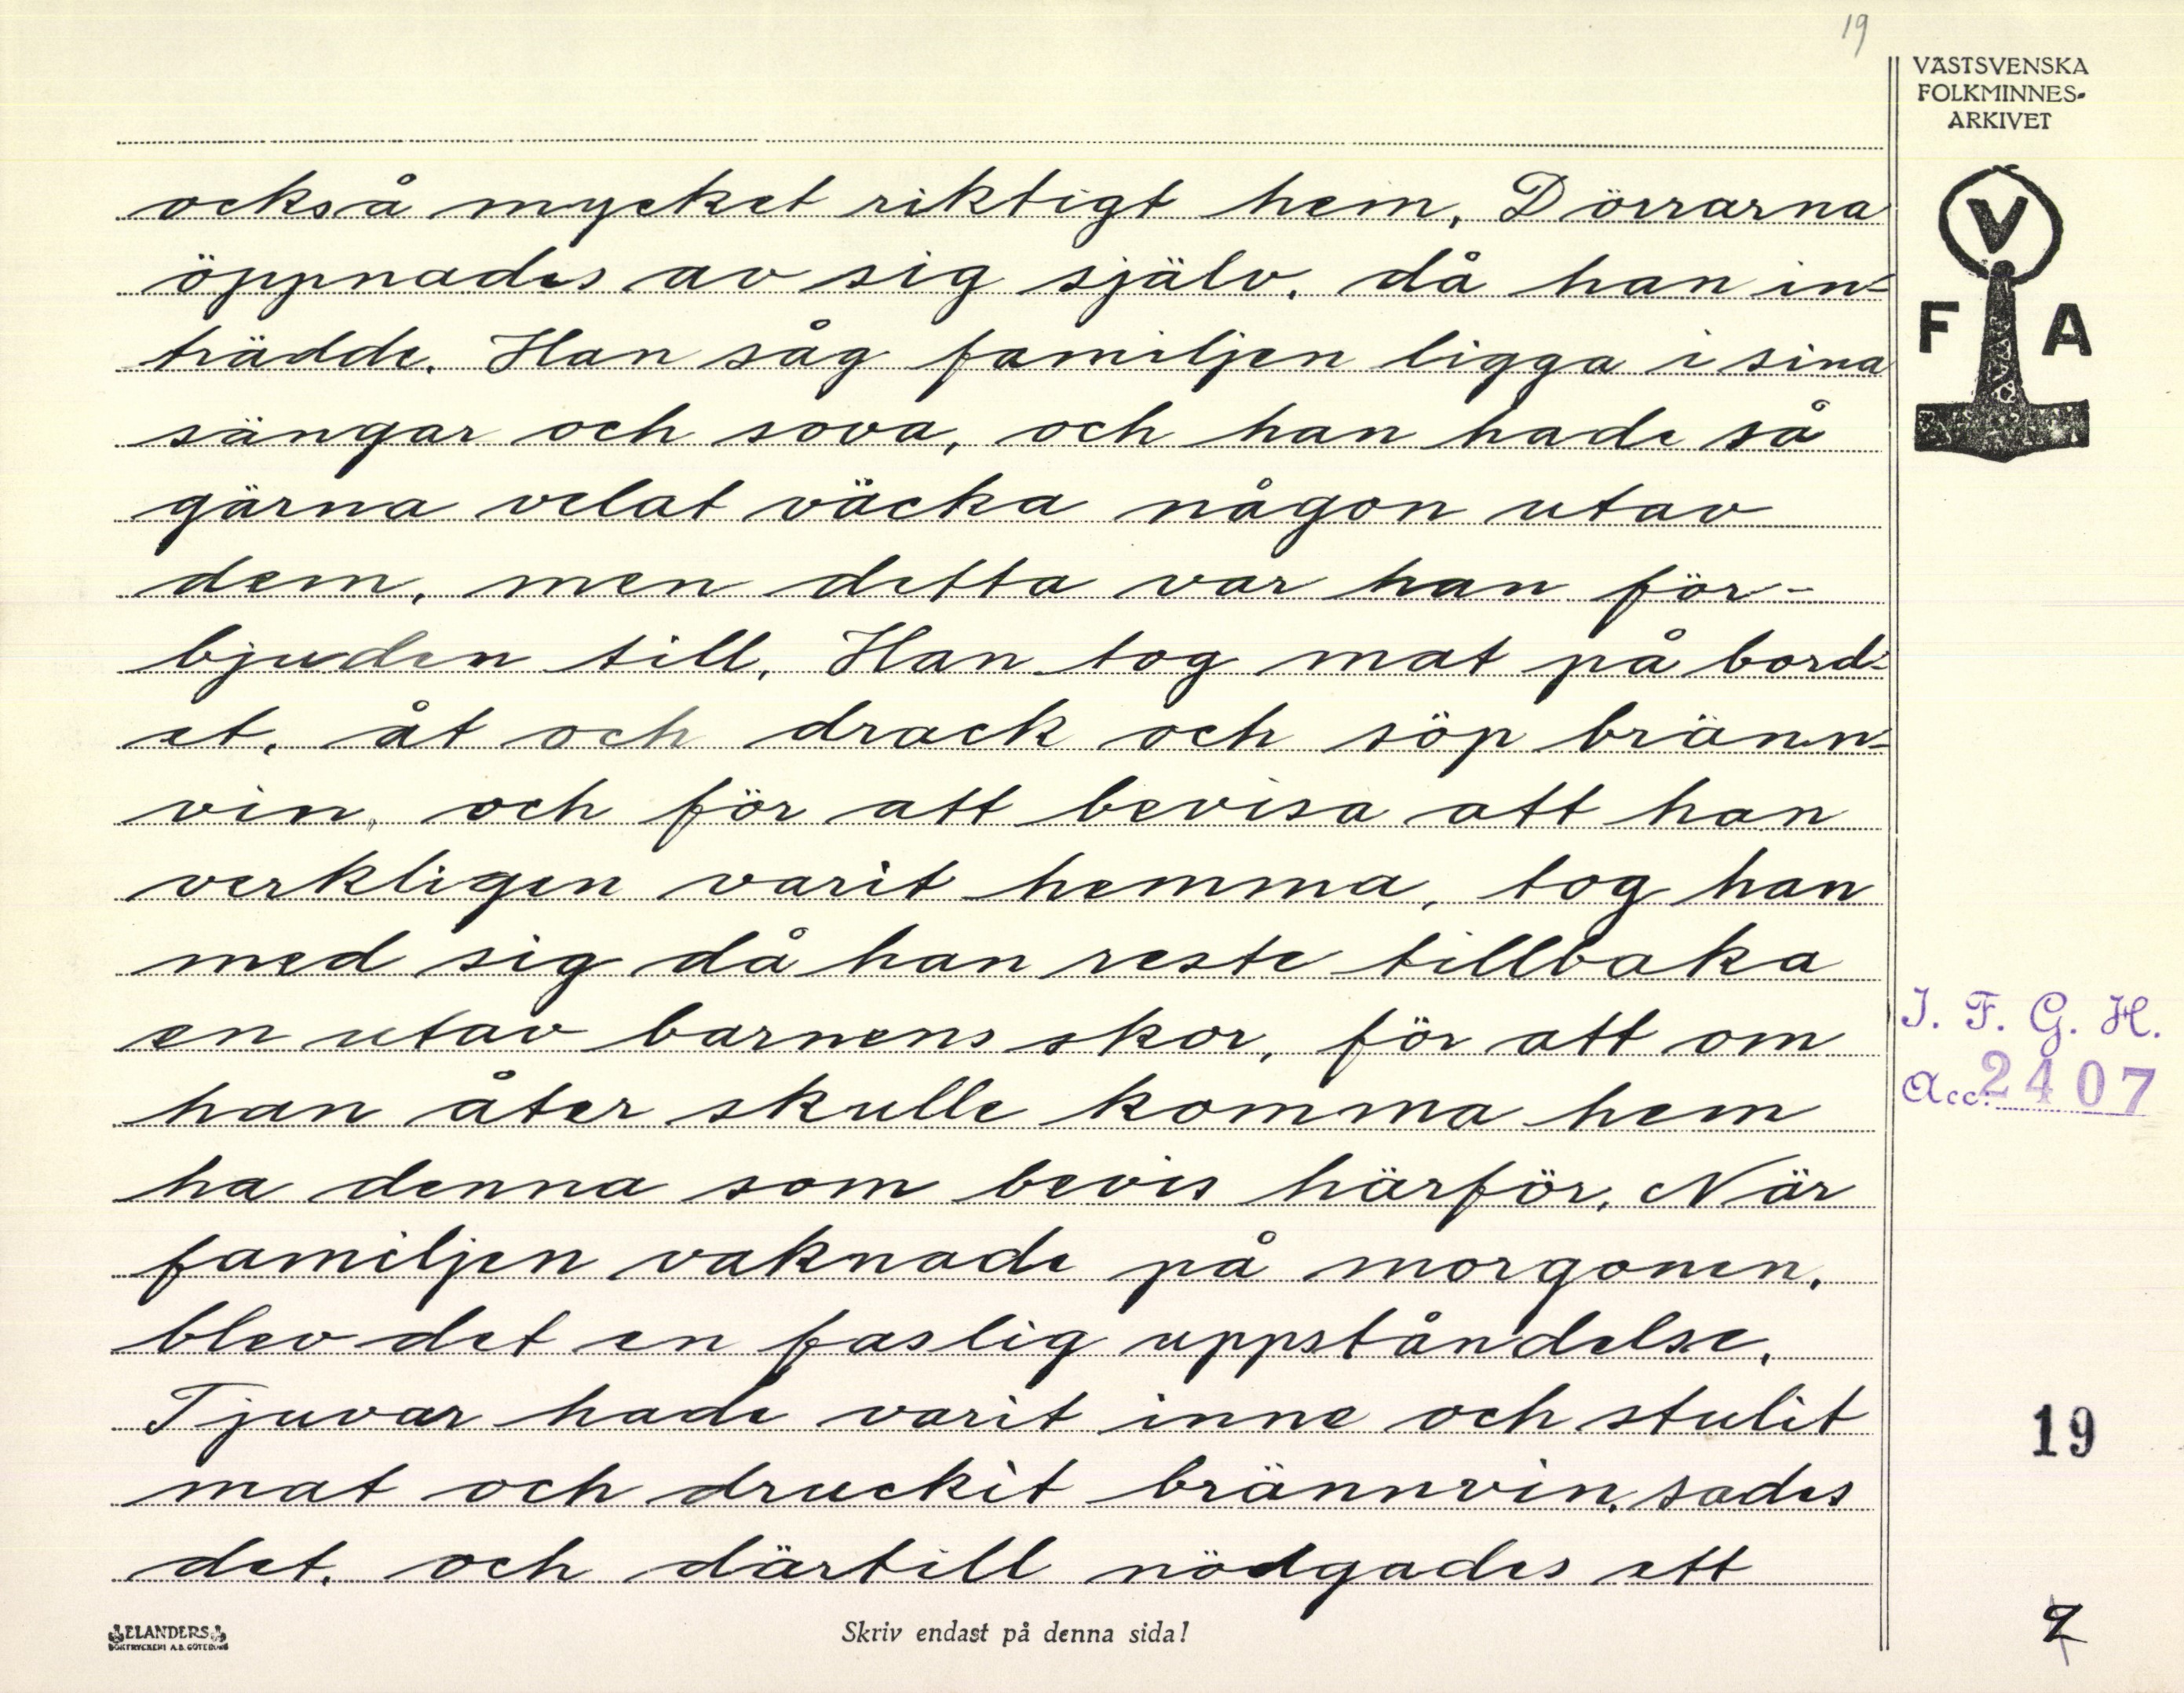 19
VÄSTSVENSKA
FOLKMINNES-
ARKIVET
V
F A
också mycket riktigt hem. Dörrarna
öppnades av sig själv, då han in-
trädde. Han såg familjen ligga i sina
sängar och sova, och han hade så
gärna velat väcka någon utav
dem, men detta var han för-
bjuden till. Han tog mat på bord-
et, åt och drack och söp bränn-
vin, och för att bevisa att han
verkligen varit hemma, tog han
med sig då han reste tillbaka
en utav barnens skor, för att om
han åter skulle komma hem
ha denna som bevis härför. När
familjen vaknade på morgonen,
blev det en faslig uppståndelse.
Tjuvar hade varit inne och stulit
mat och druckit brännvin, sades
det, och därtill nödgades ett
I. F. G. H.
Acc. 2407
19
ELANDERS
BOKTRYCKERI A.B. GÖTEBORG
Skriv endast på denna sida!